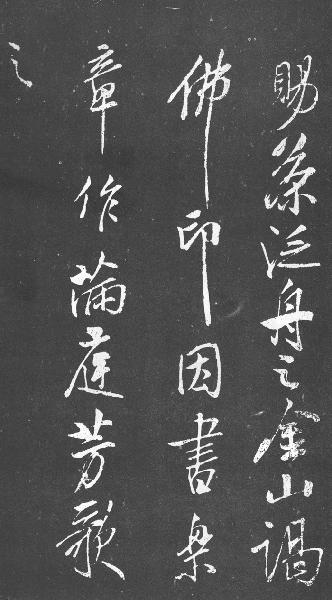 賜茶泛舟之金山謁
佛印因書樂
章作滿庭芳歌
之